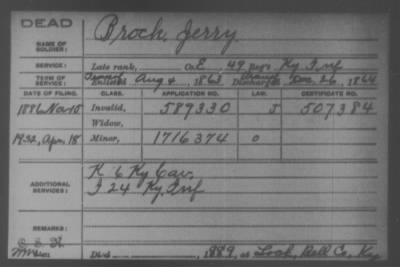 DEAD
NAME OF SOLDIER: Broch, Jerry.
SERVICE: Late rank, Co. E, 49 Regt. Ky. Inf
TERM OF SERVICE: Enlisted Aug 4, 1863 Discharged Dec. 26, 1864
DATE OF FILING. CLASS. APPLICATION NO. LAW. CERTIFICATE NO.
1886 Nov 15 Invalid, 589330 J 507384
Widow,
1932, Apr. 18 Minor, 1716374 0
ADDITIONAL SERVICES: K 6 Ky Cav.
I 24 Ky. Inf
REMARKS:
Died , 1889, at Lock, Bell Co, Ky